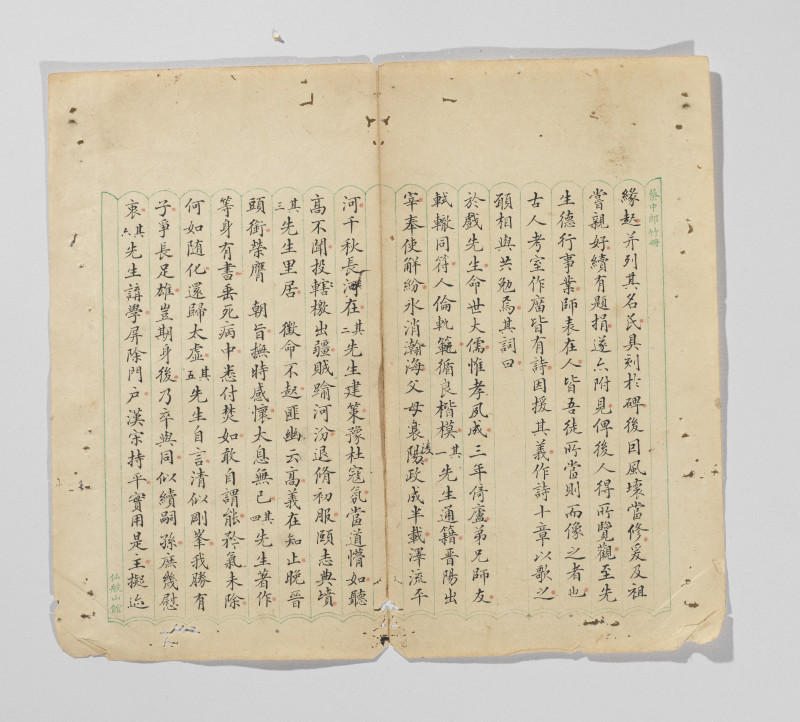 蔡中郎竹冊
緣起并列其名氏具刻於碑後回風壞當修爰及祖
嘗親好續有題捐遂亦附見俾後人得所覽觀至先
生德行事業師表在人皆吾徒所當則而像之者也
古人考室作廟皆有詩因援其義作詩十章以歌之
願相與共勉焉其詞曰
於戲先生命世大儒惟孝夙成三年倚廬弟兄師友
軾轍同符人倫軌範循良楷模其一先生通籍晉陽出
宰奉使解紛水消瀚海父母襄陵政成半載澤流平
河千秋長河在其二先生建策豫杜寇氛當道懵如聽
高不聞投轄檄出疆賊踰河汾退脩初服頤志典墳
其三先生里居 徵命不起匪幽云高義在知止晚晉
頭銜榮膺 朝旨撫時感懷太息無已其四先生著作
等身有書垂死病中悉付焚如敢自謂能矜氣未除
何如隨化還歸太虛其五先生自言清似剛峯我勝有
子爭長足雄豈期身後乃卒與同似續嗣孫庶幾慰
衷其六先生講學屏除門戶漢宋持平實用是主擬迹
仙航山館